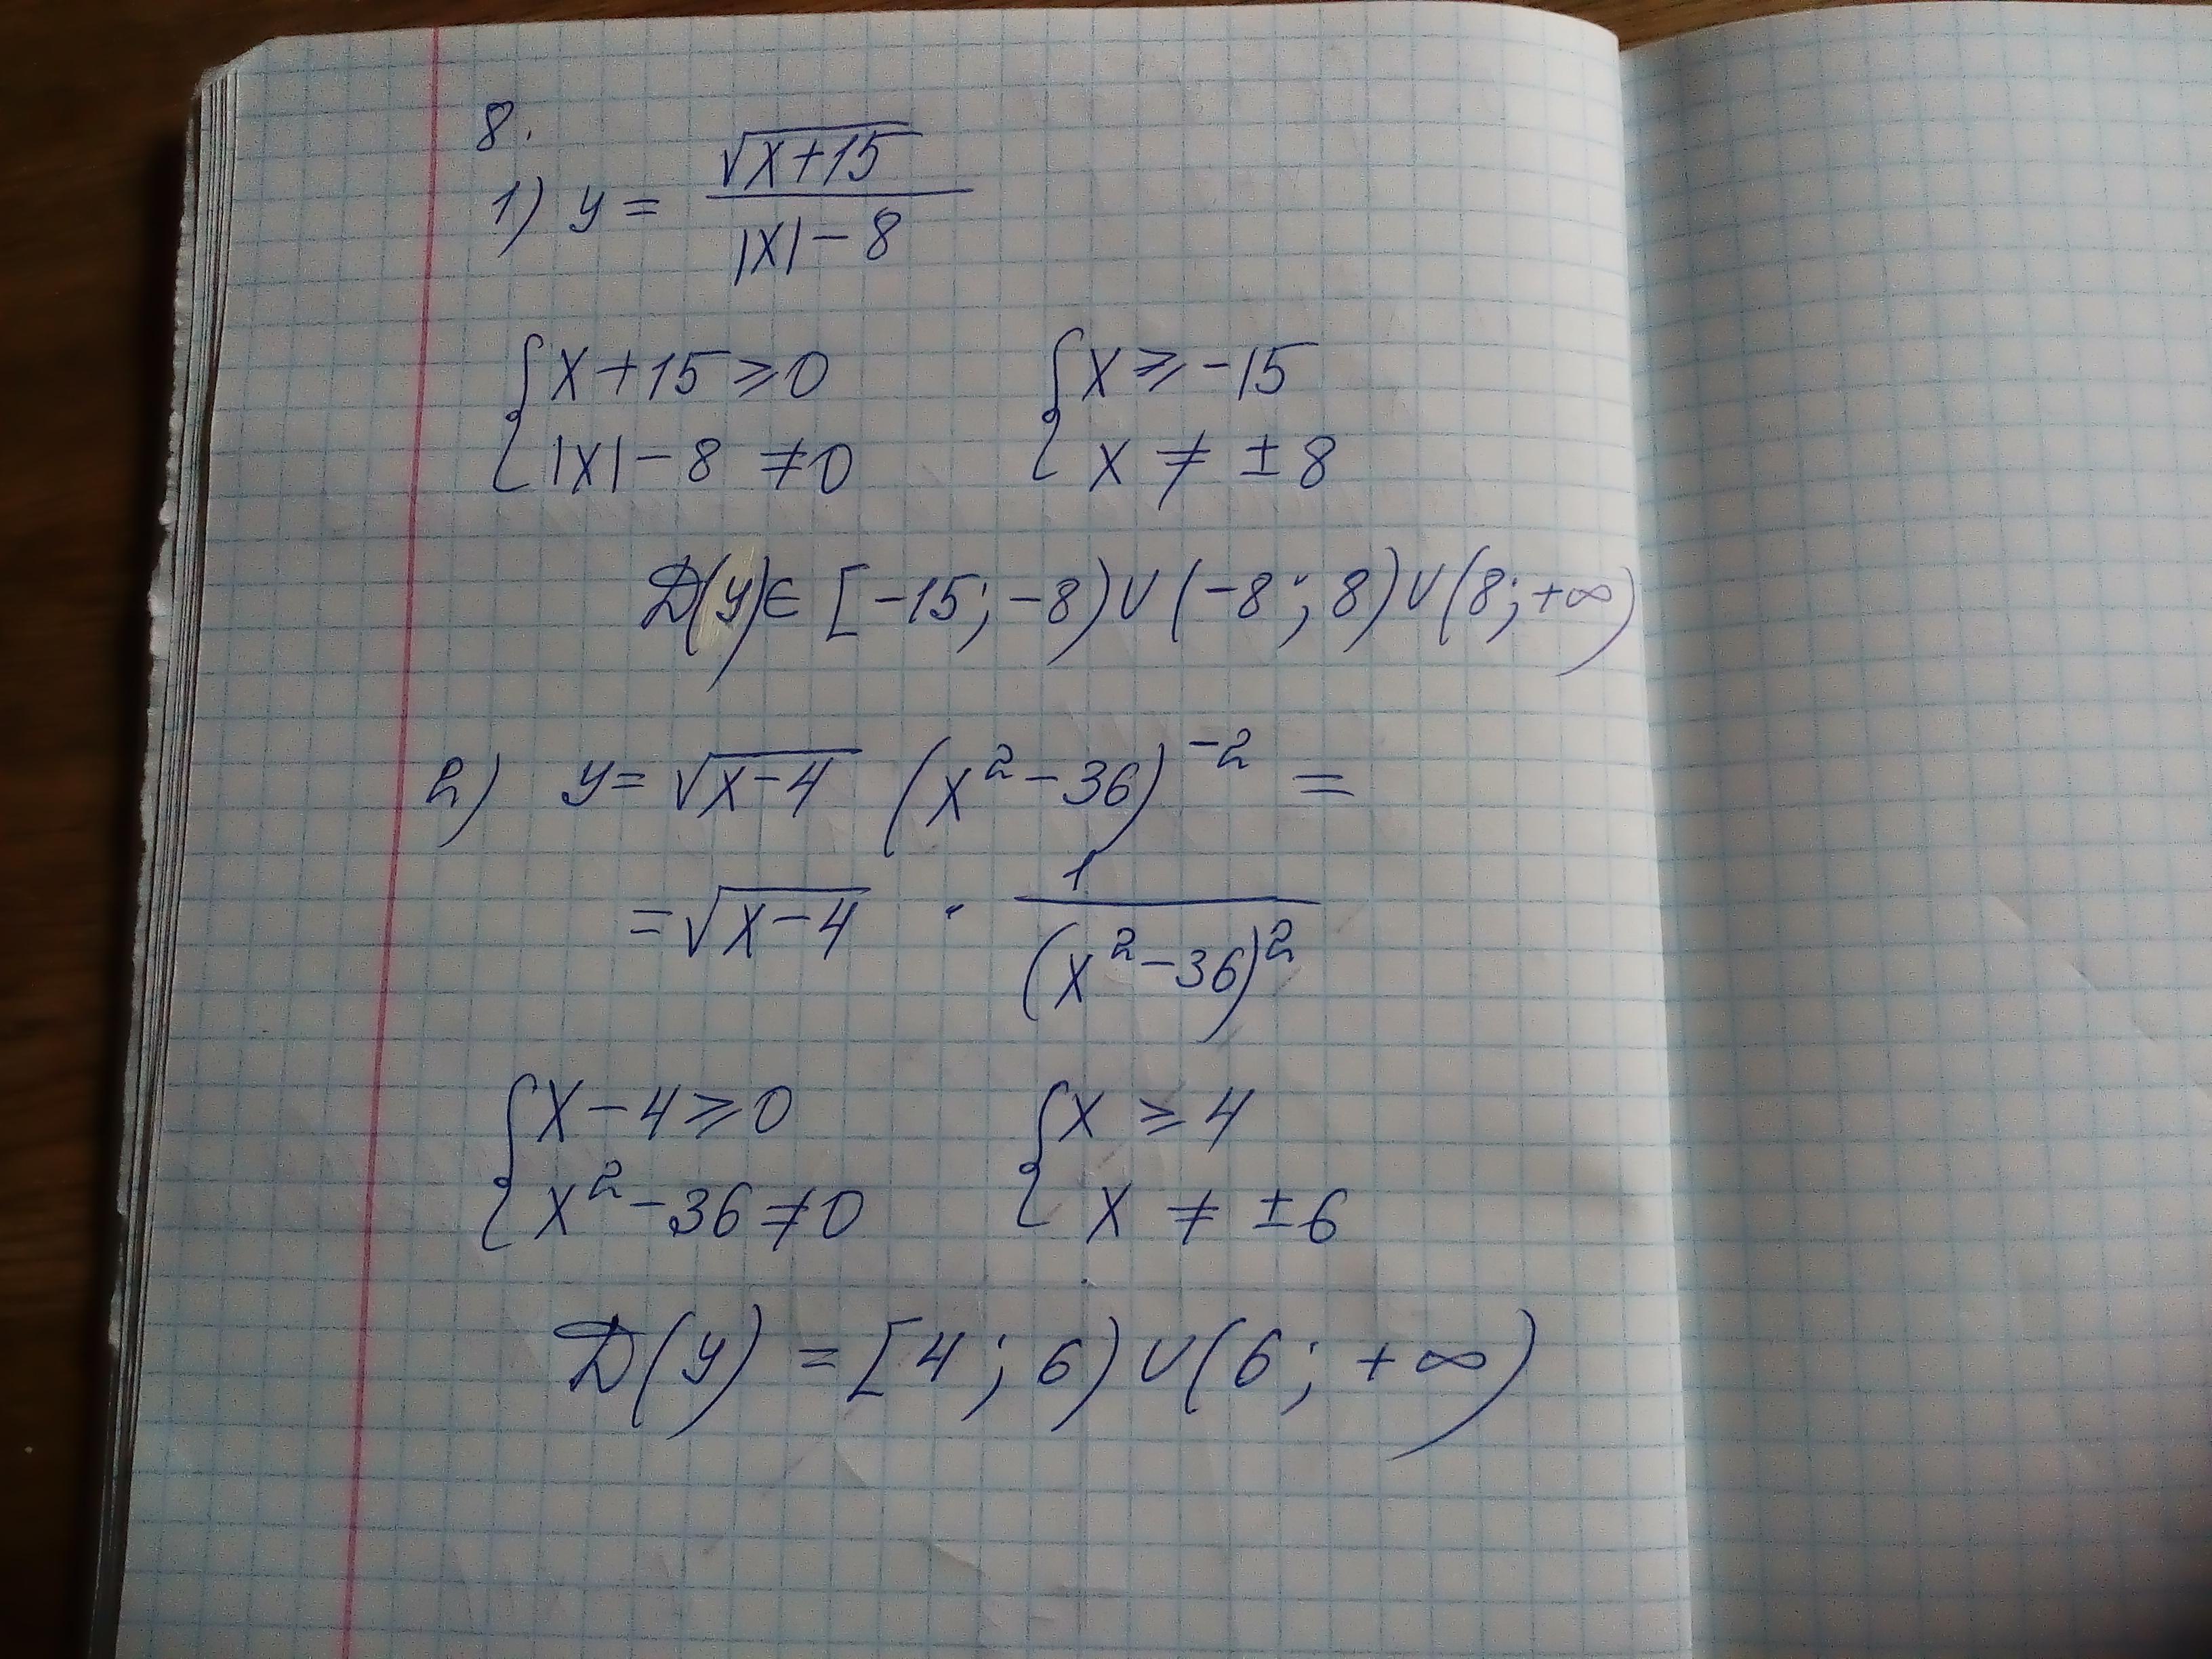 8.
1) y = √(x+15) / (|x| - 8)
{ x + 15 ⩾ 0   { x ⩾ -15
{ |x| - 8 ≠ 0   { x ≠ ± 8
D(y) ∈ [-15; -8) ∪ (-8; 8) ∪ (8; +∞)
2) y = √(x-4) (x² - 36)⁻² =
= √(x-4) · 1 / (x² - 36)²
{ x - 4 ⩾ 0   { x ⩾ 4
{ x² - 36 ≠ 0   { x ≠ ± 6
D(y) = [4; 6) ∪ (6; +∞)